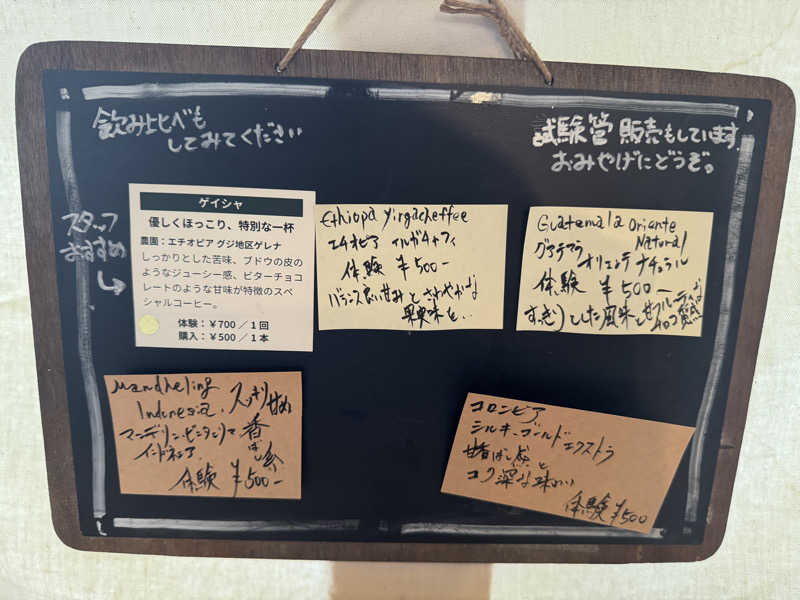 飲み比べも
してみてください
試験管 販売もしています。
おみやげにどうぞ。
スタッフ
おすすめ
ゲイシャ
優しくほっこり、特別な一杯
農園：エチオピア グジ地区ゲレナ
しっかりとした苦味、ブドウの皮の
ようなジューシー感、ビターチョコ
レートのような甘味が特徴のスペ
シャルコーヒー。
体験：￥700 / 1回
購入：￥500 / 1本
Ethiopa yirgacheffee
エチオピア イルガチャフィ
体験 ￥500-
バランス良い甘みとさわやかな
果実味を…
Guatemala Oriante
Natural
グアテマラ オリエンテ ナチュラル
体験 ￥500-
すっきりとした風味と甘フルーティな
Mandheling
Indonesia.
スッキリ甘め
マンデリン・ビンタンリマ
インドネシア
香ばし系
体験 ￥500-
コロンビア
シルキーゴールドエクストラ
甘香ばし感と
コク深な味わい
体験 ￥500